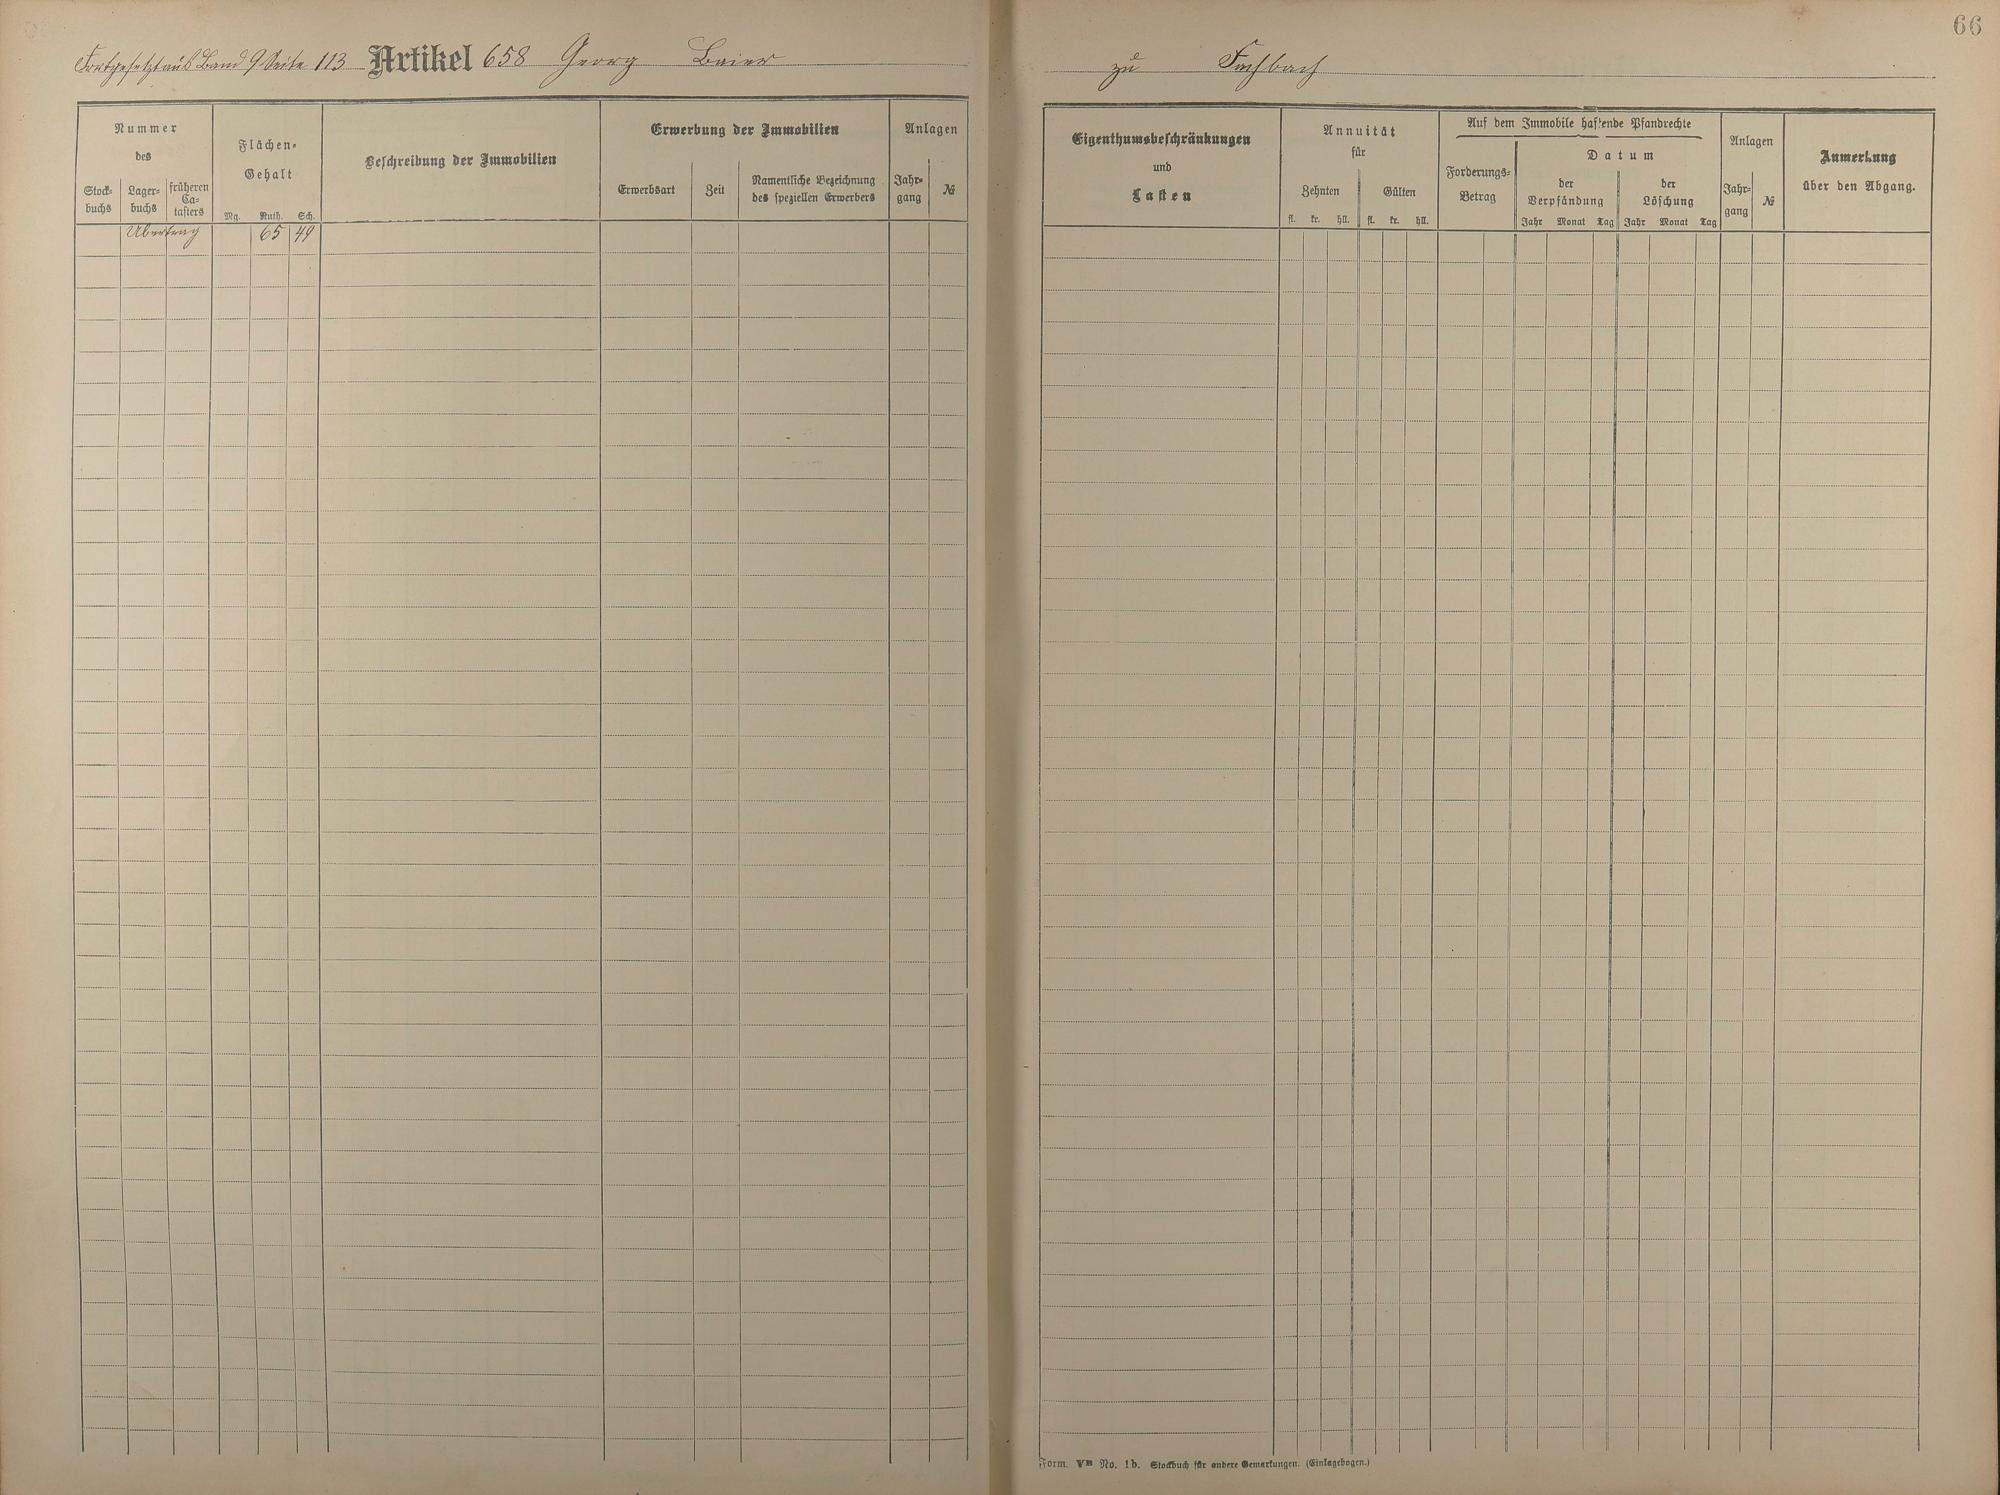 66
Fortgesetzt aus Band 9 Seite 113 Artikel 658 Georg Baier
zu Fachbach
Nummer
des
Stock-
buchs
Lager-
buchs
früheren
Ca-
tasters
Flächen-
Gehalt
Mg. Ruth. Sch.
Beschreibung der Immobilien
Erwerbung der Immobilien
Erwerbsart
Zeit
Namentliche Bezeichnung
des speziellen Erwerbers
Anlagen
Jahr-
gang
№
Übertrag 65 49
Eigenthumsbeschränkungen
und
Lasten
Annuität
für
Zehnten
Gülten
fl. kr. hll. fl. kr. hll.
Auf dem Immobile haftende Pfandrechte
Forderungs-
Betrag
Datum
der
Verpfändung
Jahr Monat Tag
der
Löschung
Jahr Monat Tag
Anlagen
Jahr-
gang
№
Anmerkung
über den Abgang.
Form. VB No. 1b. Stockbuch für andere Gemarkungen. (Einlagebogen.)